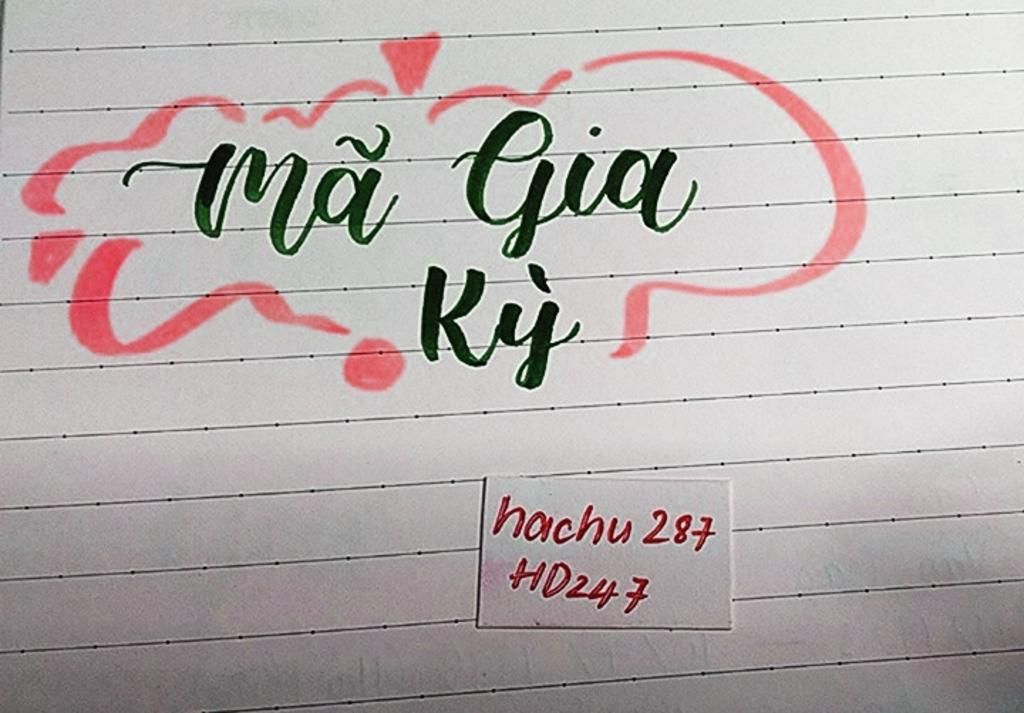 Mã Gia
Kỳ
hachu 287
HD247